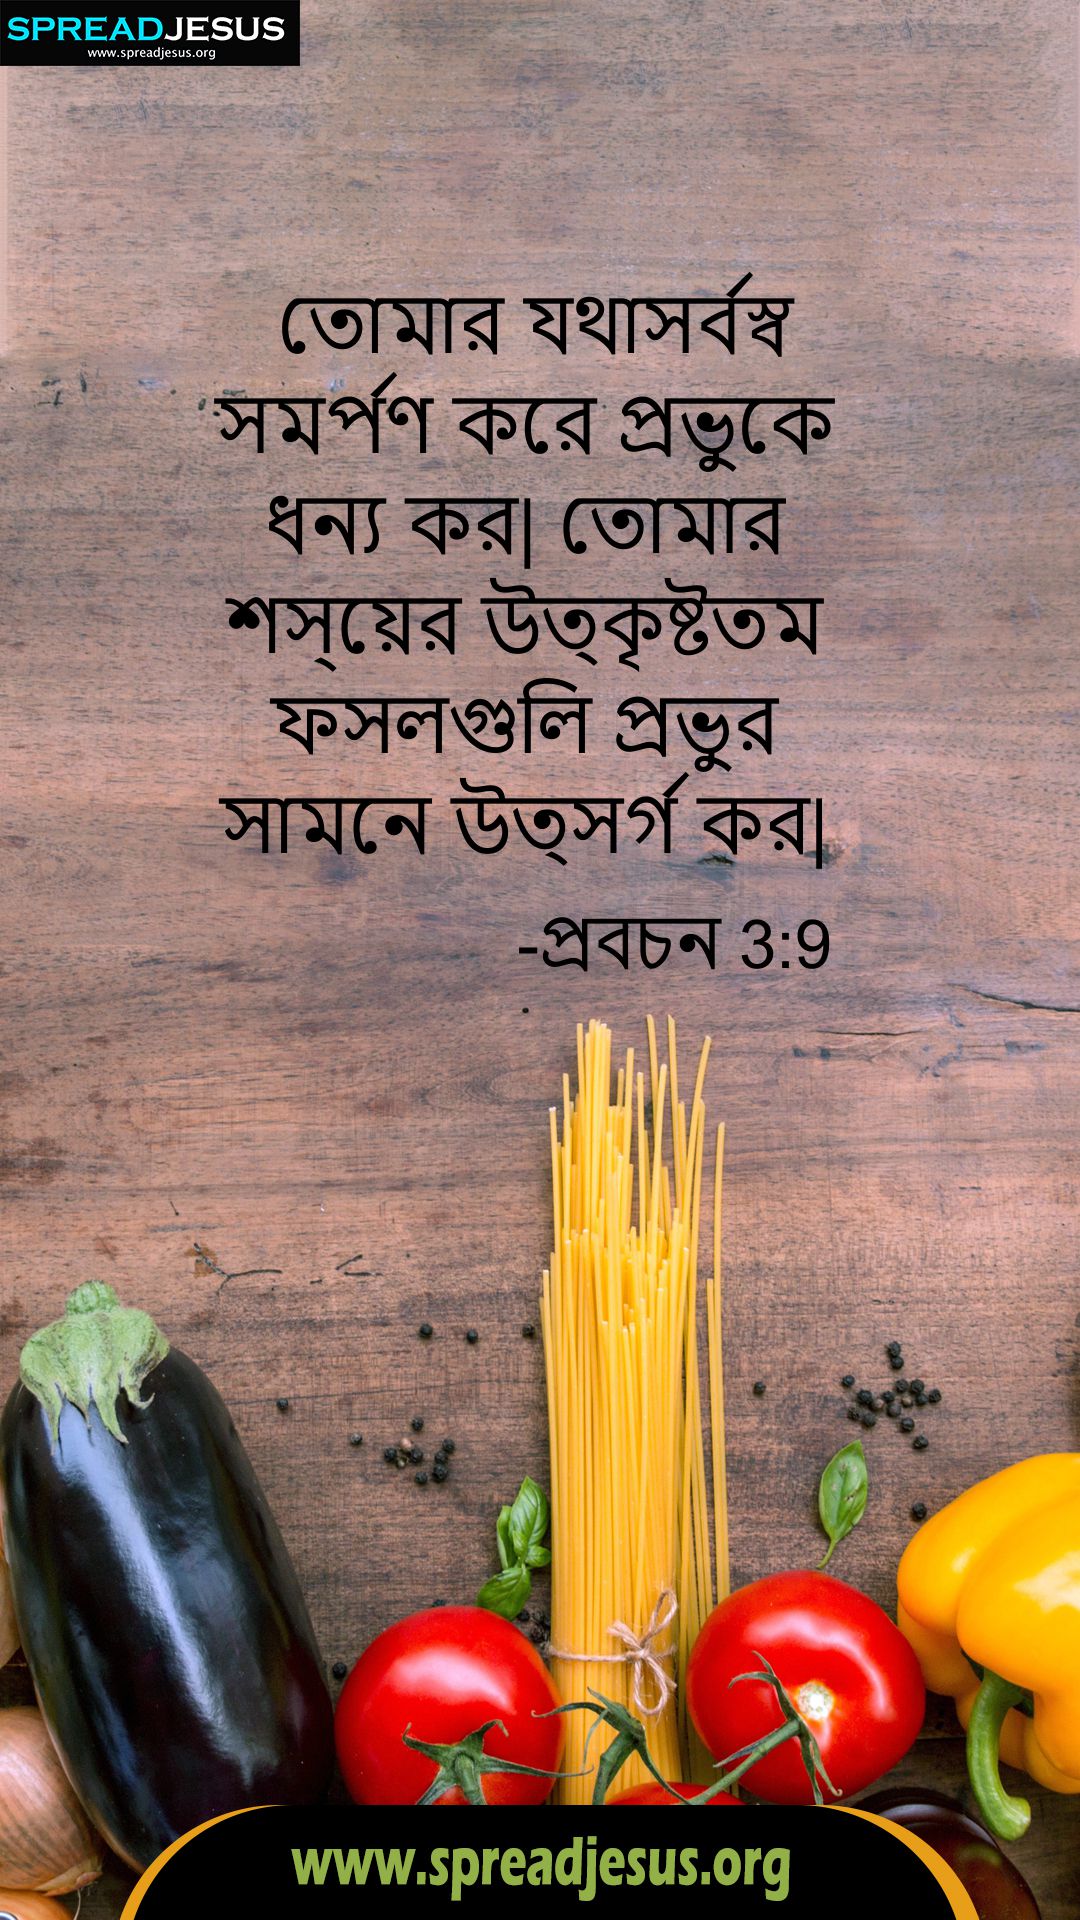 SPREADJESUS
www.spreadjesus.org
তোমার যথাসর্বস্ব
সমর্পণ করে প্রভুকে
ধন্য কর| তোমার
শস্য়ের উত্‌কৃষ্টতম
ফসলগুলি প্রভুর
সামনে উত্‌সর্গ কর|
-প্রবচন 3:9
www.spreadjesus.org